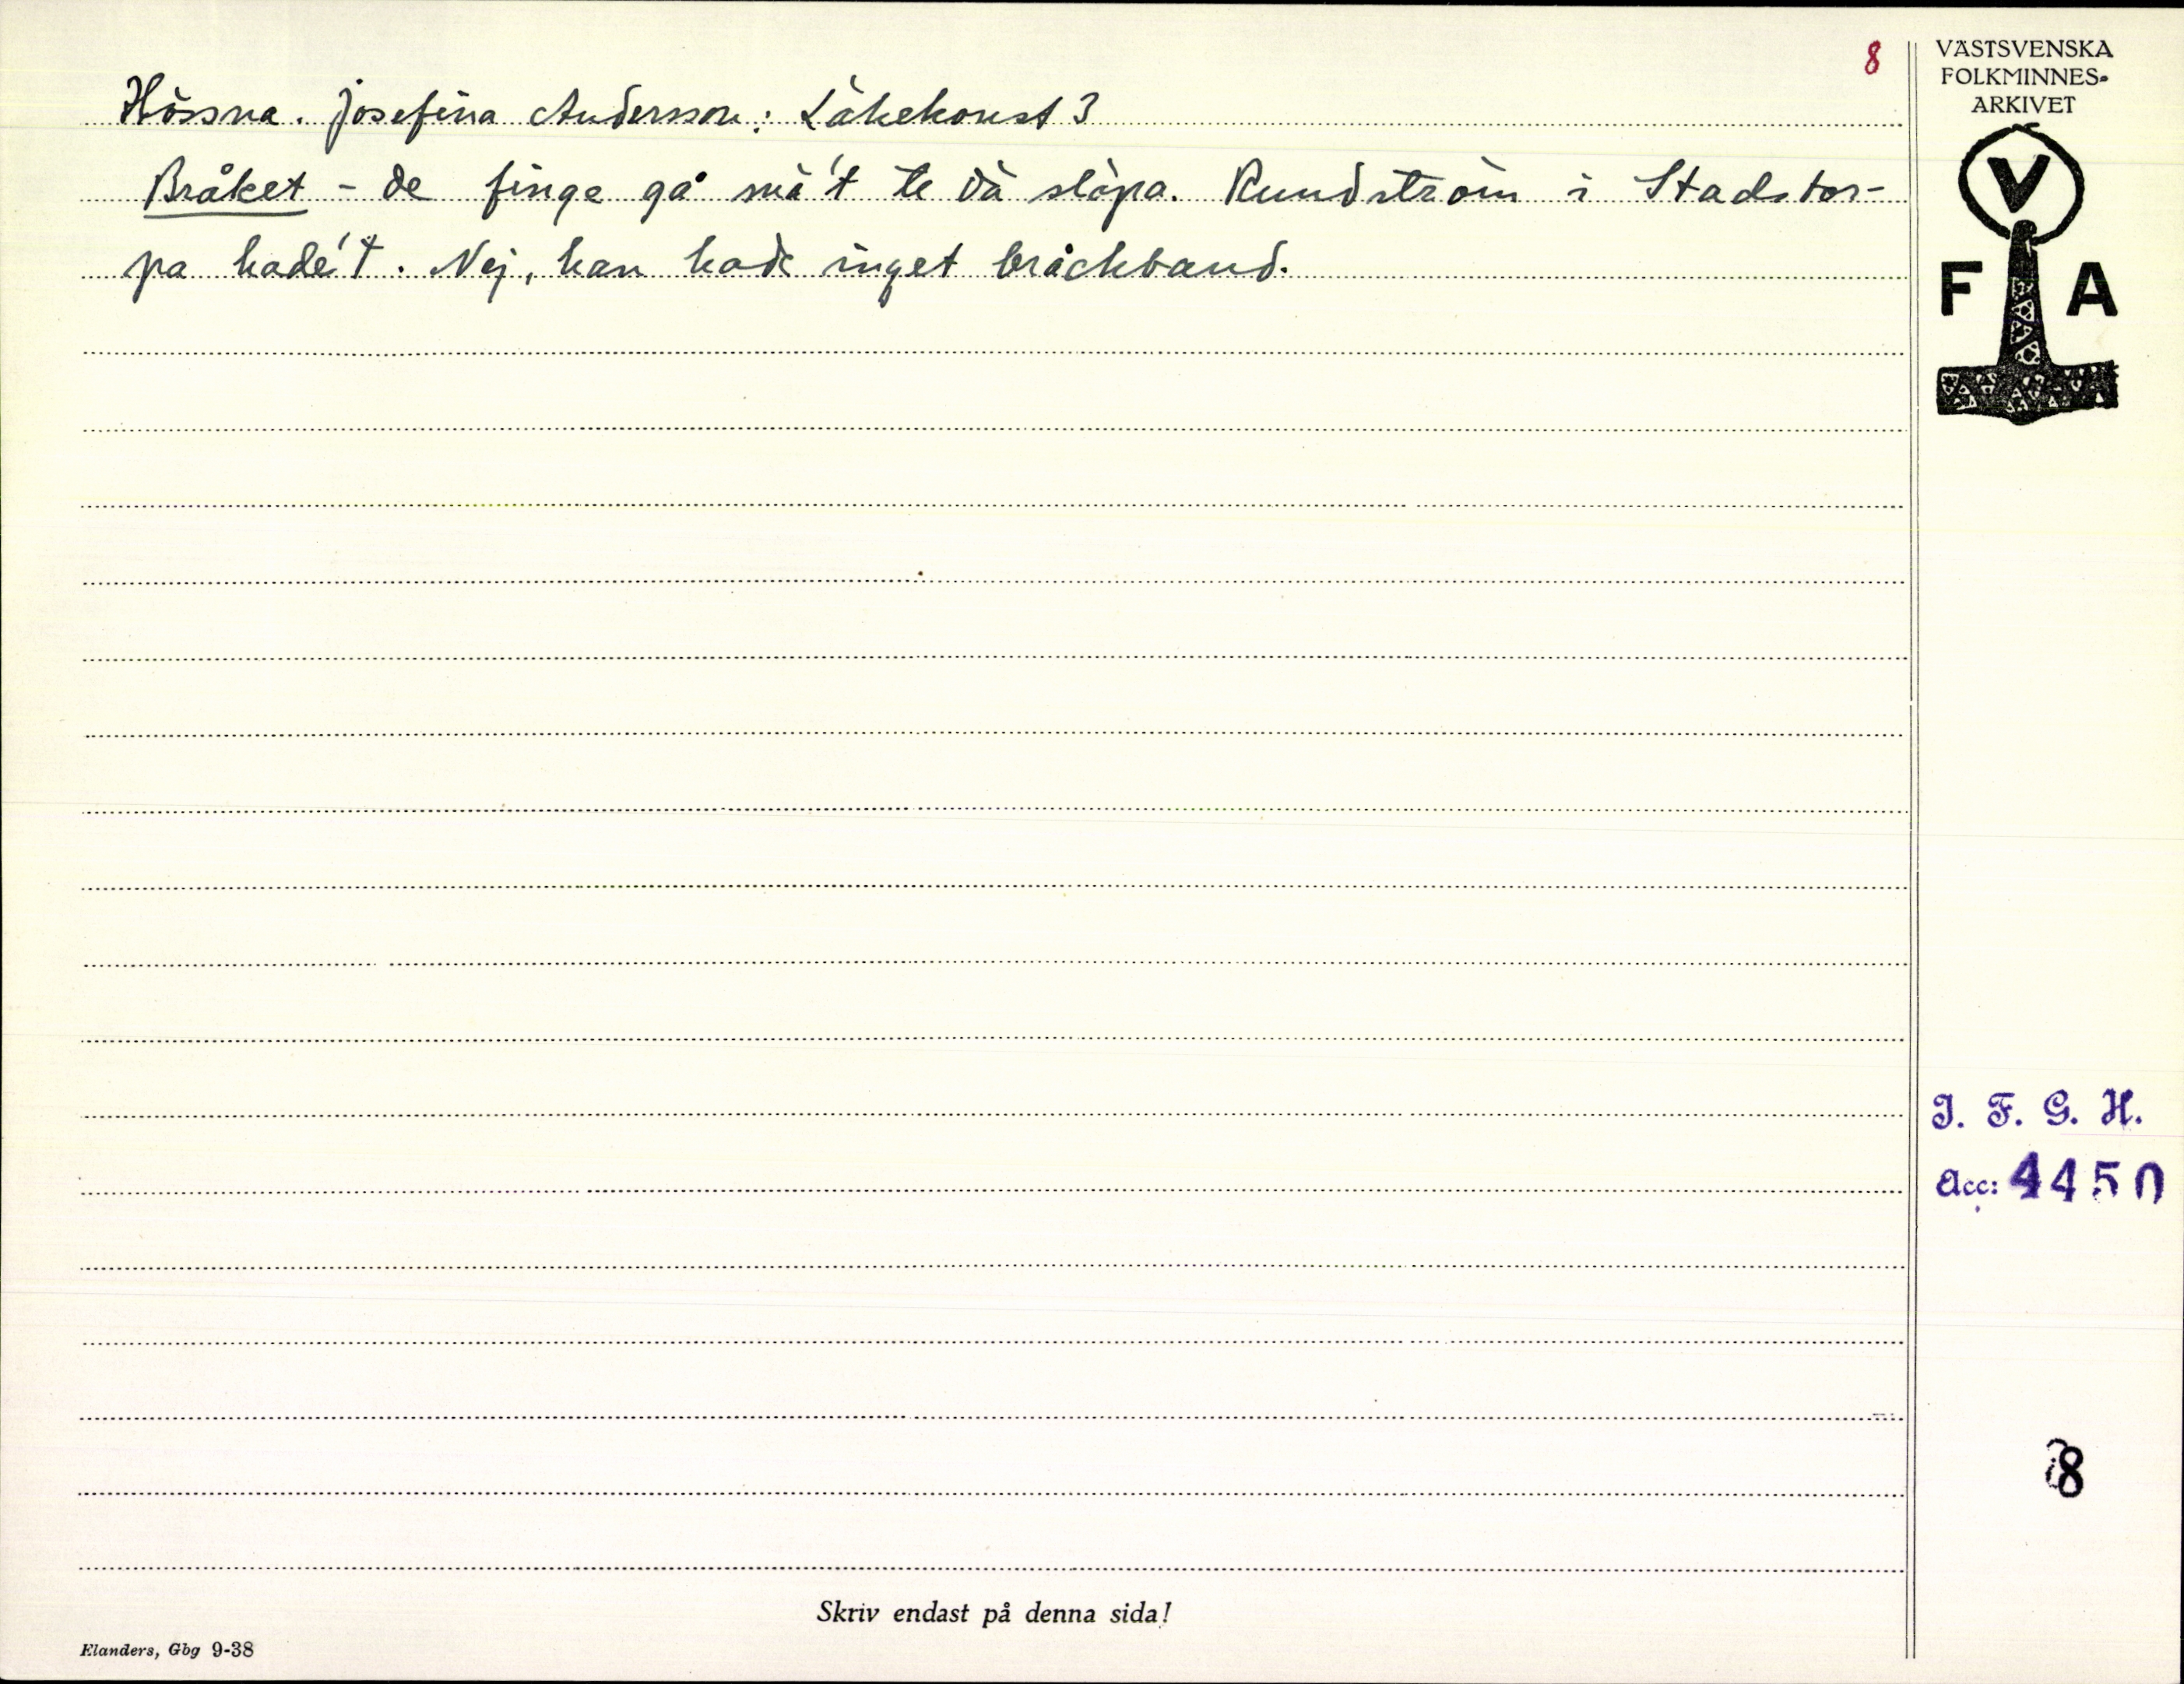 8
Hössna. Josefina Andersson: Läkekonst 3
Bråket - de finge gå mä't te dä släpa. Rundström i Stadstor-
pa hade't. Nej, han hade inget bråckband.
VÄSTSVENSKA
FOLKMINNES-
ARKIVET
V
F A
I. F. G. H.
Acc: 4450
8
Skriv endast på denna sida!
Elanders, Gbg 9-38